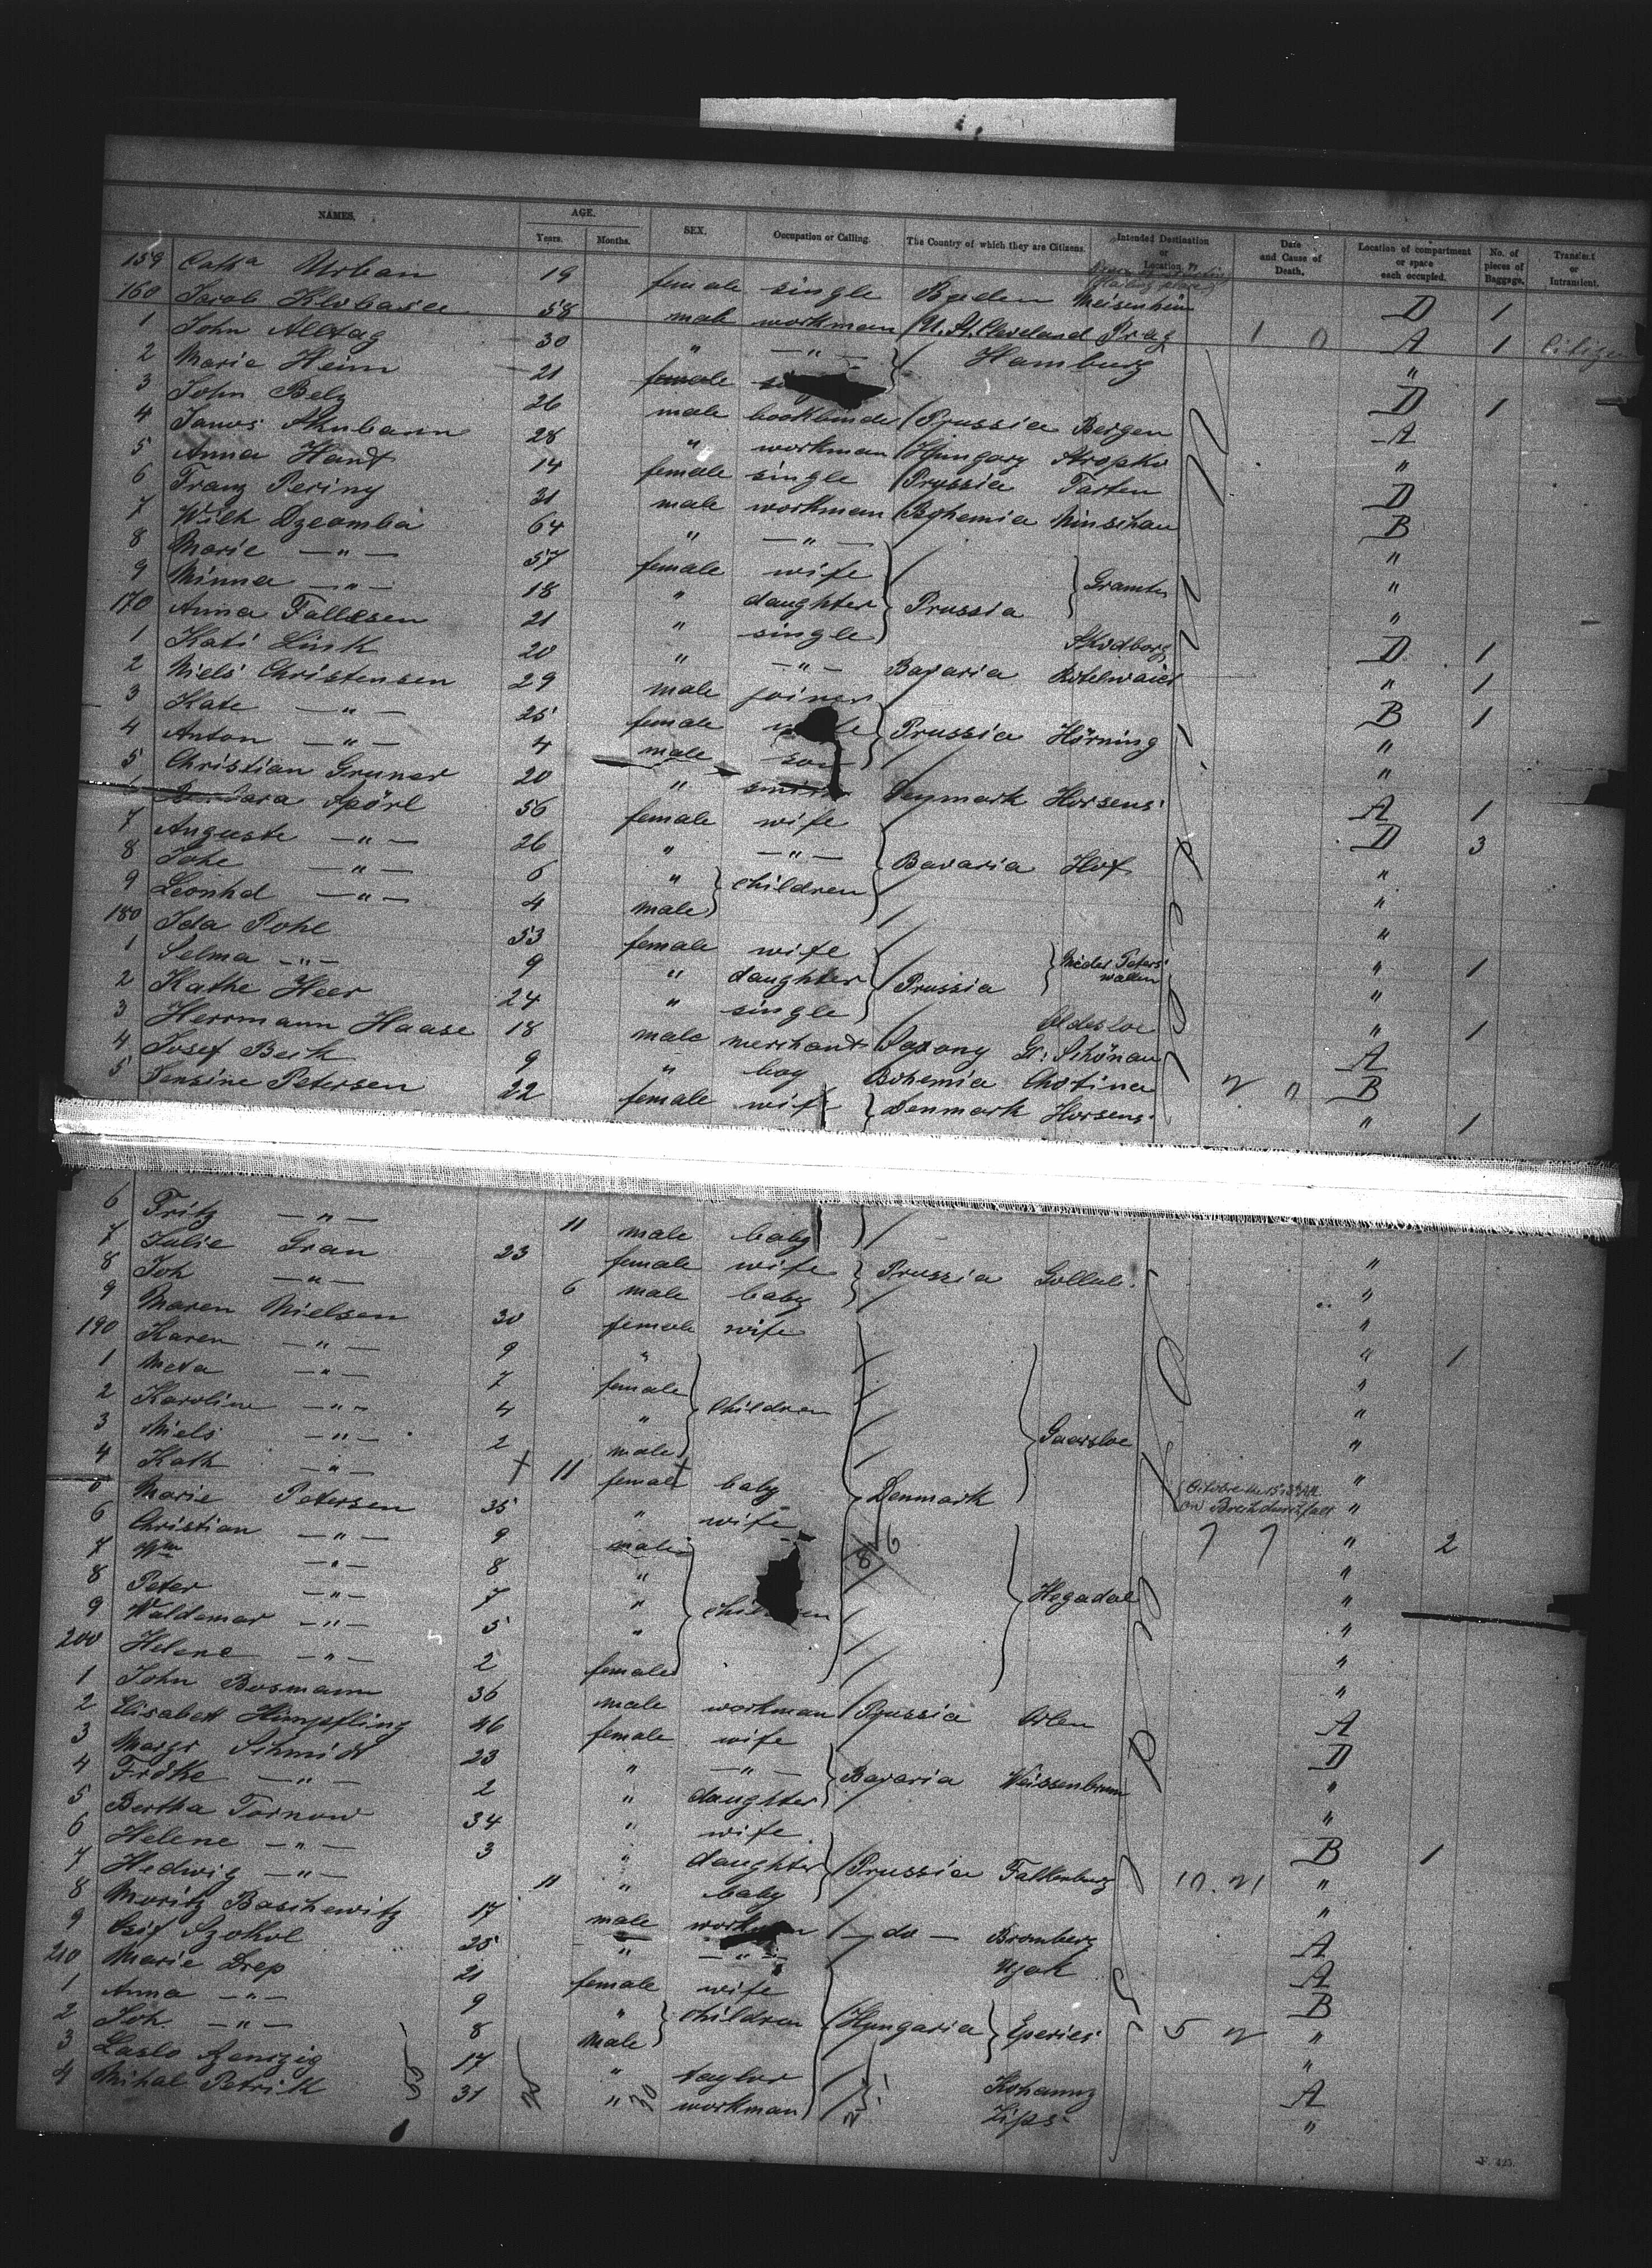 NAMES. AGE. SEX. Occupation or Calling. The Country of which they are Citizens. Intended Destination or Location Date and Cause of Death. Location of compartment or space each occupied. No. of pieces of Baggage. Transient or Intransient.
Years. Months.
159 Catha Urban 19 female single Baden Meisenheim D 1
160 Jacob Klobasa 58 male workman U. St. Cleveland Prag 1 0 A 1 Citizen
1 John Alltag 30 " —"— Hamburg "
2 Marie Heim 21 female D 1
3 John Belz 26 male bookbinder Prussia Bergen A
4 Janos 28 " workman Hungary Stropko "
5 Anna Handt 14 female single Prussia Tarten D
6 Franz Periny 31 male workman Bohemia B
7 Wilh Dzeomba 64 " —"— "
8 Marie —"— 57 female wife "
9 Minna —"— 18 " daughter Prussia "
170 Anna Fallesen 21 " single Skodborg D 1
1 Kati Link 20 " —"— Bavaria " 1
2 Niels Christensen 29 male joiner B 1
3 Kate —"— 25 female wife Prussia Hörning "
4 Anton —"— 4 male son "
5 Christian Gruner 20 " Denmark Horsens A 1
6 Spörl 56 female wife D 3
7 Auguste —"— 26 " —"— Bavaria Hof "
8 Johe —"— 6 " children "
9 Leonhd —"— 4 male "
180 Ida Pohl 53 female wife " 1
1 Selma —"— 9 " daughter Prussia Nieder Peterswallen "
2 Kathe Heer 24 " single Oldesloe " 1
3 Herrmann Haase 18 male merchant Saxony Gr. Schönau A
4 Josef Beck 9 " boy Bohemia Chotina 2 0 B
5 Jensine Petersen 22 female wife Denmark Horsens " 1
6 Fritz —"— 11 male baby "
7 Julie Grau 23 female wife Prussia Gollub "
8 Joh —"— 6 male baby "
9 Maren Nielsen 30 female wife " 1
190 Karen —"— 9 " "
1 Meta —"— 7 female children "
2 Karoline —"— 4 " "
3 Niels —"— 2 male "
4 Kath —"— † 11 female † baby Denmark "
5 Marie Petersen 35 " wife 7 7 " 2
6 Christian —"— 9 male 8 6 "
7 Wm —"— 8 " "
8 Peter —"— 7 " children Hegadal "
9 Waldemar —"— 5 " "
200 Helene —"— 2 female "
1 John Bosmann 36 male workman Prussia Orlen A
2 Elisabett Himpfling 46 female wife D
3 Margr Schmidt 23 " —"— Bavaria Weissenbrunn "
4 Frdke —"— 2 " daughter "
5 Bertha Tornow 34 " wife B 1
6 Helene —"— 3 " daughter Prussia Falkenburg 10 21 "
7 Hedwig —"— 11 " baby "
8 Moritz Baschewitz 17 male workman —do— Bromberg A
9 Szokol 25 " —"— Ujak A
210 Marie Drep 21 female wife B
1 Anna —"— 9 " children Hungaria Eperies 5 2 "
2 Joh. —"— 8 male "
3 Laslo 17 " taylor A
4 Mihal Petrik 31 " workman Zips "
F. 425.